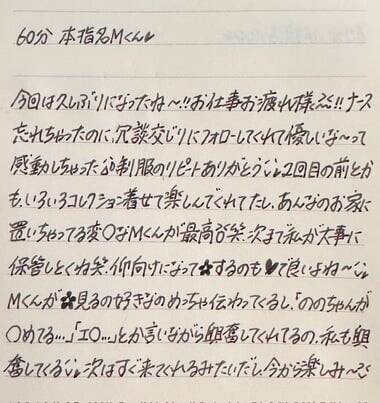 60分 本指名Mくん♥
今回は久しぶりになったね〜!!お仕事お疲れ様!!ナース
忘れちゃったのに、冗談交じりにフォローしてくれて優しいな〜って
感動しちゃった 制服のリピートありがとう 2回目の前とか
も、いろいろコレクション着せて楽しんでくれてたし、あんなのお家に
置いちゃってる変〇なMくんが最高 笑 次まで私が大事に
保管しとくね笑 仰向けになって✿するのも♥て良いよね〜
Mくんが✿見るの好きなのめっちゃ伝わってくるし、「ののちゃんが
〇めてる…」「エロ…」とか言いながら興奮してくれてるの、私も興
奮してくる 次はすぐ来てくれるみたいだし、今から楽しみ〜